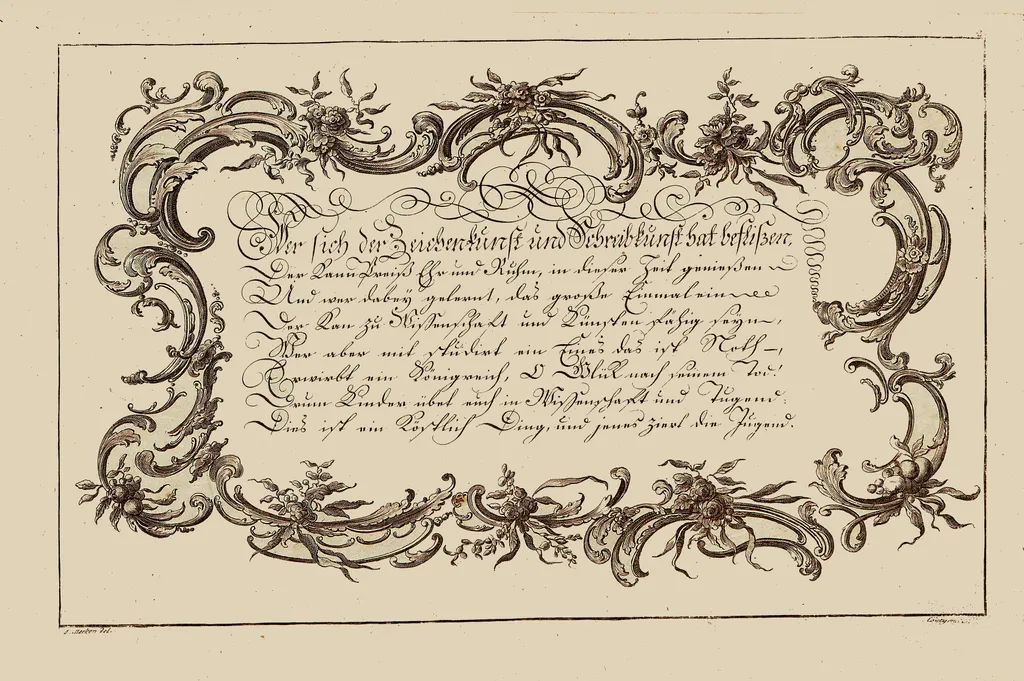 Wer sich der Zeichenkunst und Schreibkunst hat beflißen,
Der kann Preiß Ehr und Ruhm, in dieser Zeit genießen
Und wer dabey gelernt, das große Einmalein
Der kan zu Wissenschaft und Künsten fähig seyn,
Wer aber mit studirt ein Eines das ist Noth,
Erwirbt ein Königreich, O Glük nach seinem Tod!
Drum Kinder übet euch in Wissenschaft und Tugend:
Dies ist ein Köstlich Ding, und jenes ziert die Jugend.
J. Merken del.